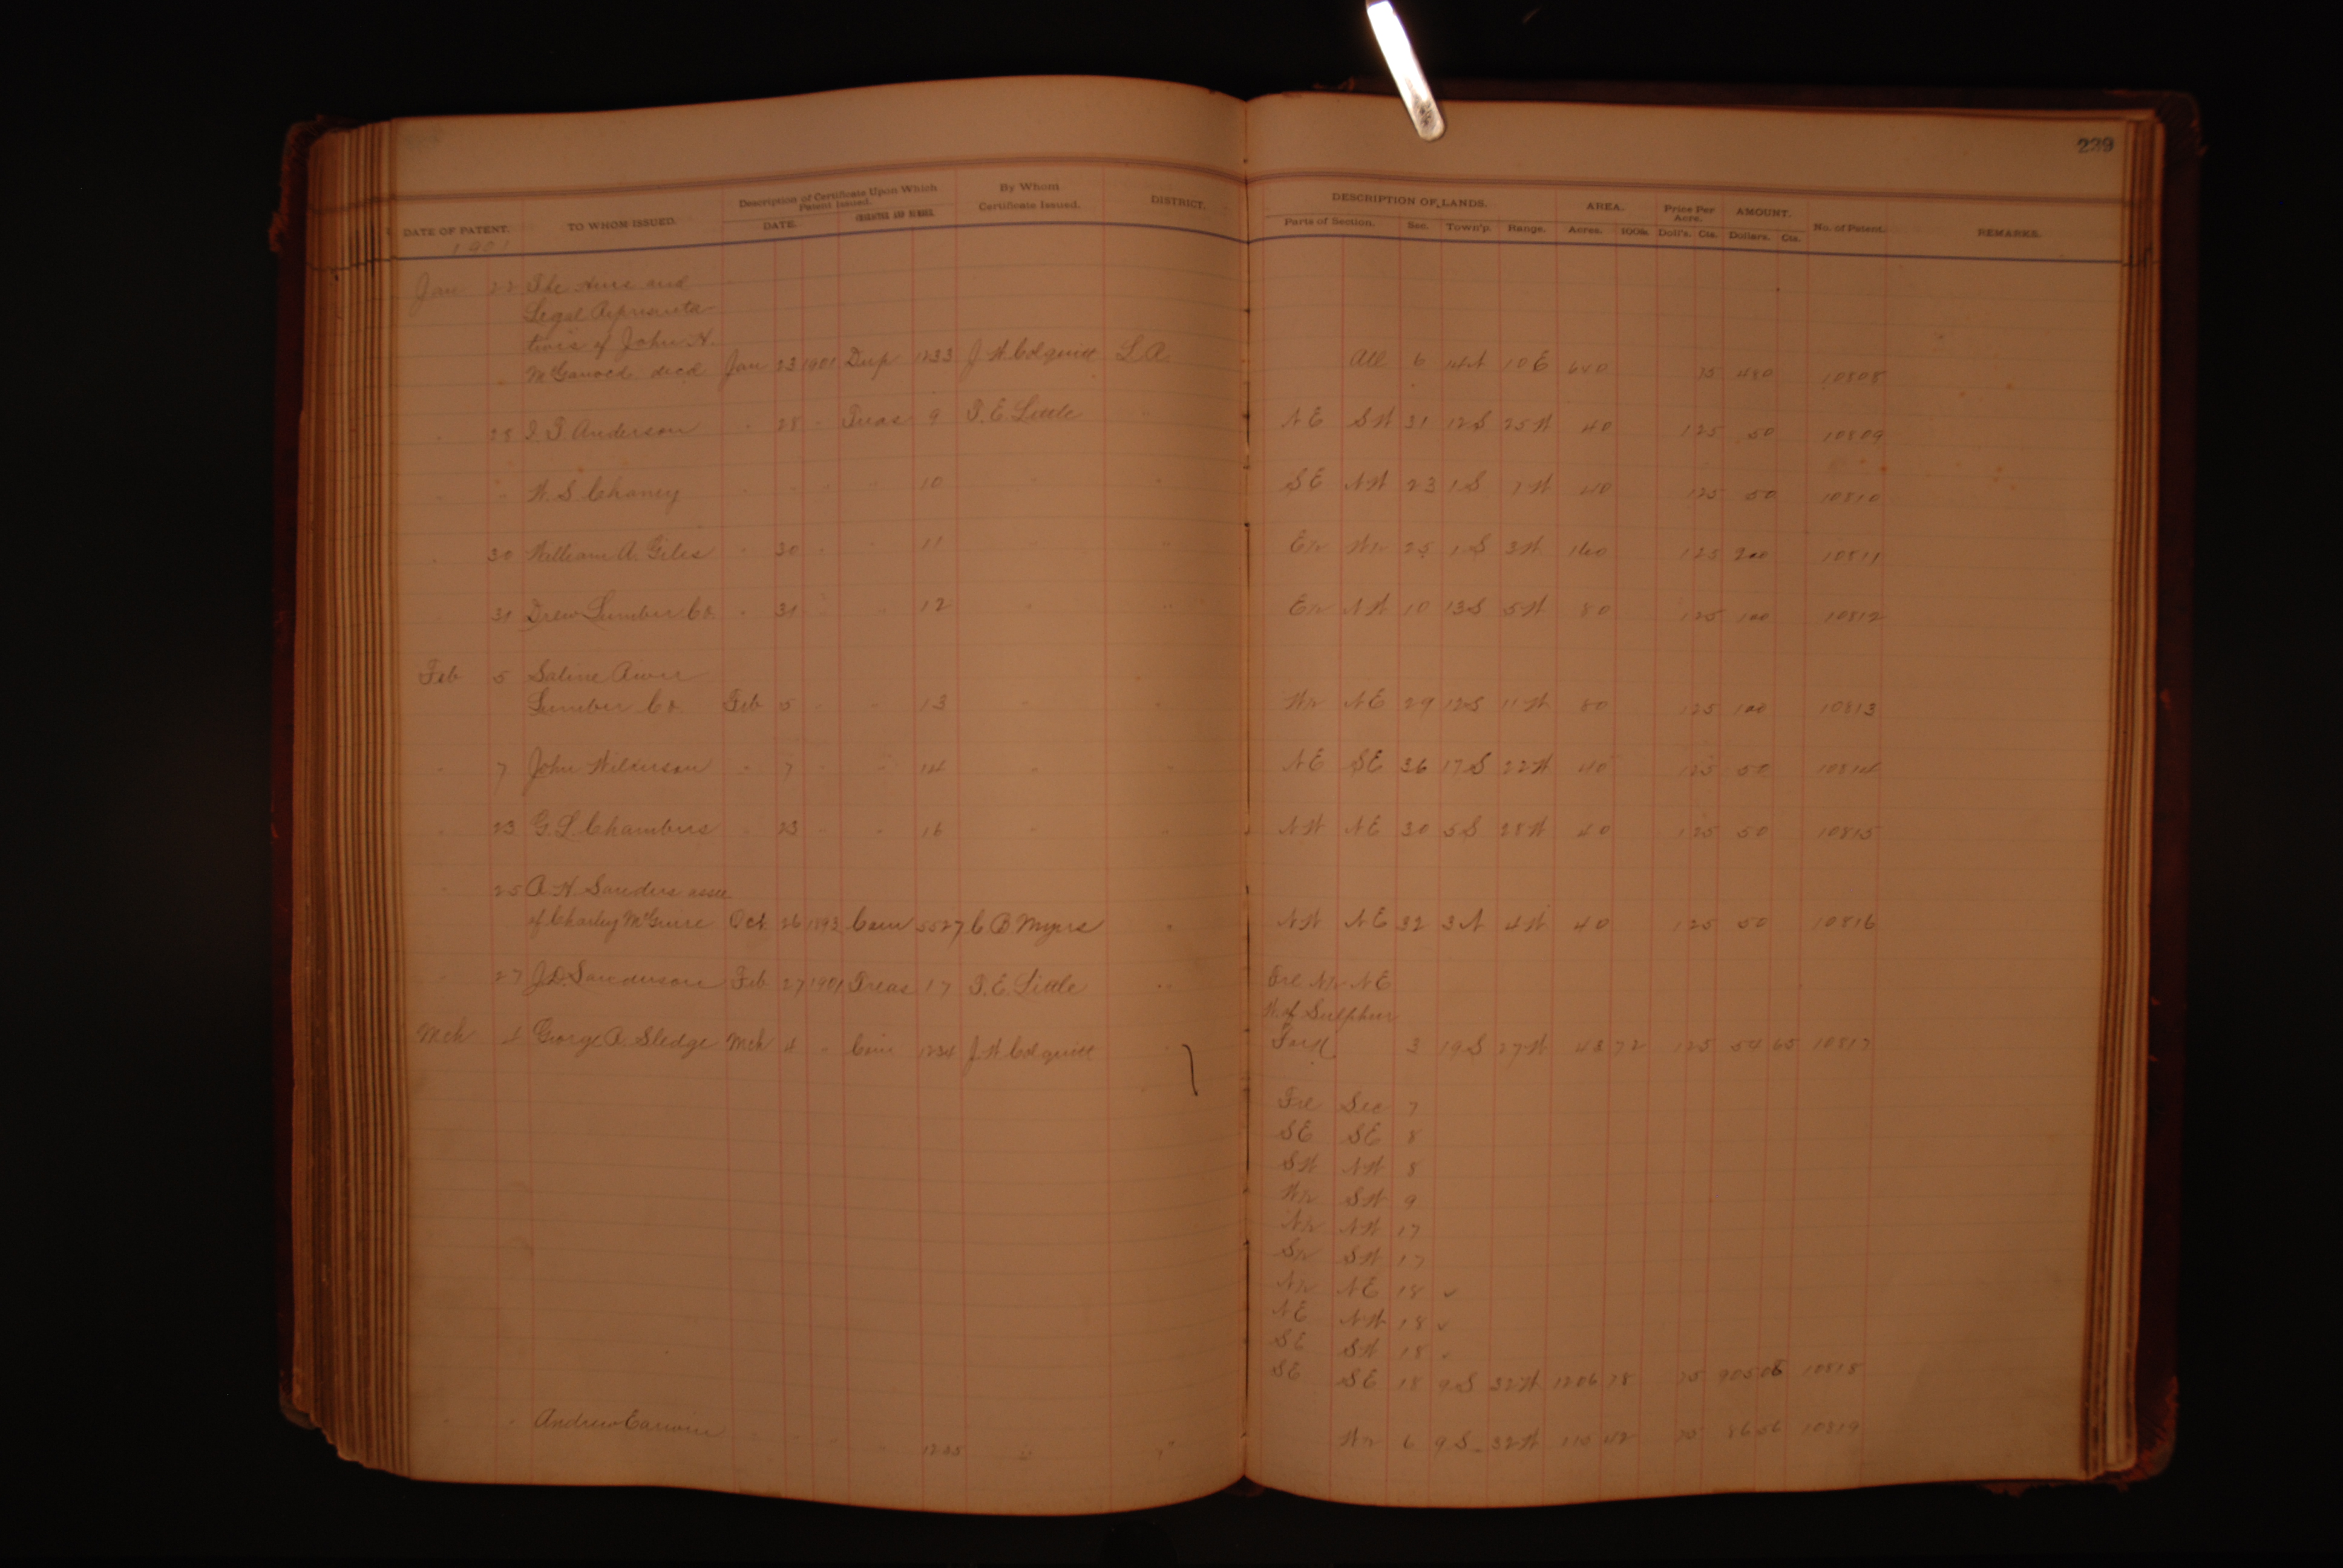 229
Description of Certificate Upon Which Patent Issued. By Whom Certificate Issued. DISTRICT. DESCRIPTION OF LANDS. AREA. Price Per Acre. AMOUNT. No. of Patent. REMARKS.
DATE OF PATENT. TO WHOM ISSUED. DATE. CHARACTER AND NUMBER. Parts of Section. Sec. Town'p. Range. Acres. 100ths. Doll's. Cts. Dollars. Cts.
1901
Jan 22 The heirs and
Legal Representa
tives of John H.
decd Jan 23 1901 Dup 1233 J W Colquitt L.R. All 6 14N 10E 640 75 480 10808
" 28 Anderson " 28 " Treas 9 T. E. Little " NE SW 31 12S 25W 40 125 50 10809
" " W. S. Chaney " " " " 10 " " SE NW 23 1S 40 125 50 10810
" 30 William A. Giles " 30 " " 11 " " E½ W½ 25 1S 3W 160 125 200 10811
31 Drew Lumber Co. " 31 " " 12 " " E½ NW 10 13S 5W 80 125 100 10812
Feb 5 Saline River
Lumber Co. Feb 5 " " 13 " " W½ NE 29 12S 11W 80 125 100 10813
" 7 John Wilkerson " 7 " " 14 " " NE SE 36 17S 22W 40 125 50 10814
" 23 G. L. Chambers 23 " " 16 " " NW NE 30 5S 28W 40 125 50 10815
" 25 A. H. Sanders assee
of Charley McGuire Oct. 26 1893 Cam 5527 C B Myers " NW NE 32 3N 4W 40 125 50 10816
" 27 J. D. Sanderson Feb 27 1901 Treas 17 T. E. Little " Frl N½ NE
W. of Sulphur
Fork 3 19S 27W 43 72 125 54 65 10817
Mch 4 George A. Sledge Mch 4 " Cam 1234 J. W Colquitt "
Frl Sec 7
SE SE 8
SW NW 8
W½ SW 9
N½ NW 17
S½ SW 17
N½ NE 18 ✓
NE NW 18 ✓
SE SW 18 ✓
SE SE 18 9S 32W 1206 78 75 905 08 10818
" " Andrew " " " " 1235 " " W½ 6 9S 32W 115 42 75 86 56 10819